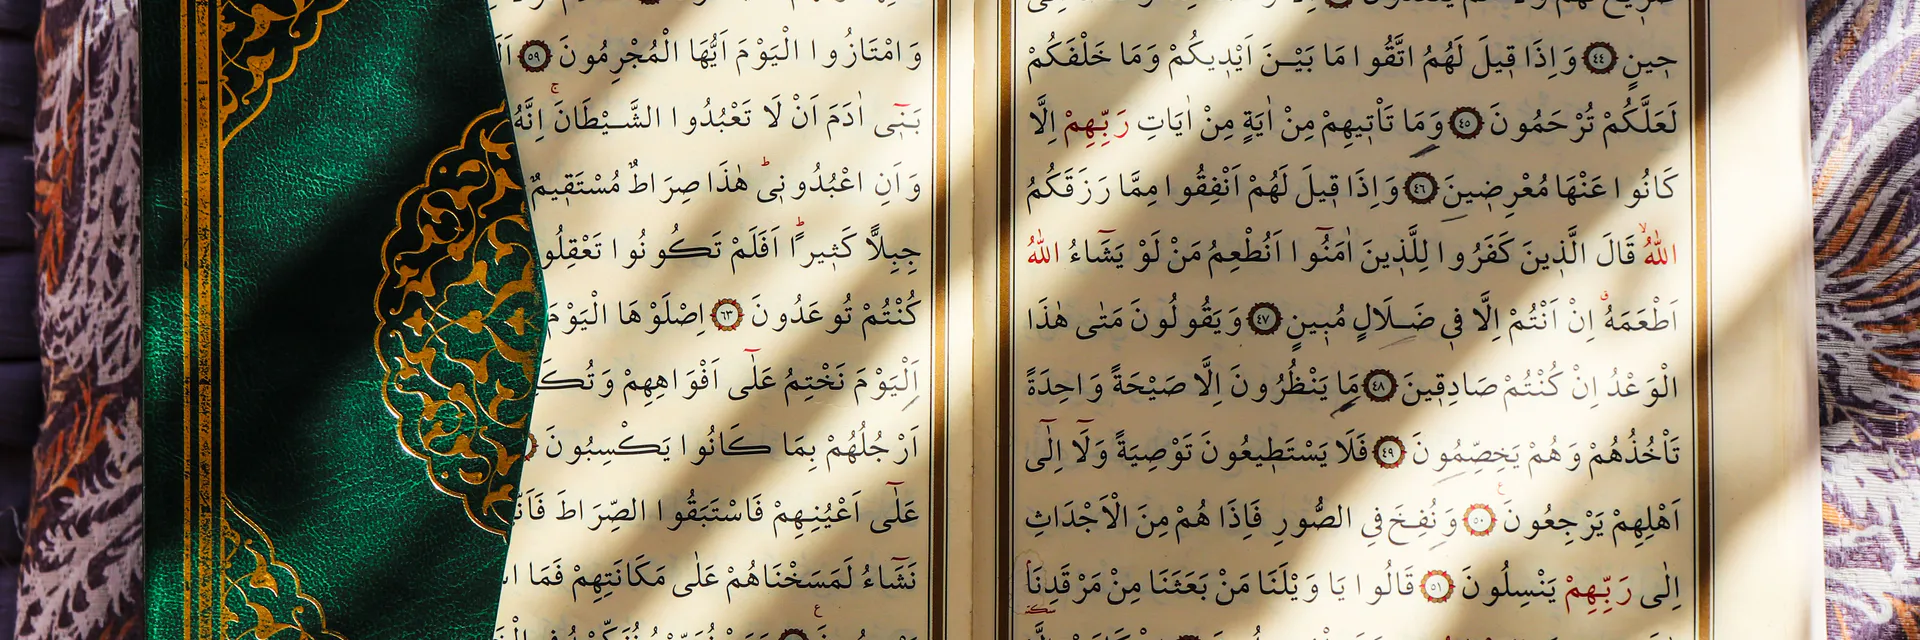 حٖينٍ ٤٤ وَاِذَا قٖيلَ لَهُمُ اتَّقُوا مَا بَيْنَ اَيْدٖيكُمْ وَمَا خَلْفَكُمْ
لَعَلَّكُمْ تُرْحَمُونَ ٤٥ وَمَا تَاْتٖيهِمْ مِنْ اٰيَةٍ مِنْ اٰيَاتِ رَبِّهِمْ اِلَّا
كَانُوا عَنْهَا مُعْرِضٖينَ ٤٦ وَاِذَا قٖيلَ لَهُمْ اَنْفِقُوا مِمَّا رَزَقَكُمُ
اللّٰهُۙ قَالَ الَّذٖينَ كَفَرُوا لِلَّذٖينَ اٰمَنُٓوا اَنُطْعِمُ مَنْ لَوْ يَشَٓاءُ اللّٰهُ
اَطْعَمَهُۗ اِنْ اَنْتُمْ اِلَّا فٖى ضَلَالٍ مُبٖينٍ ٤٧ وَيَقُولُونَ مَتٰى هٰذَا
الْوَعْدُ اِنْ كُنْتُمْ صَادِقٖينَ ٤٨ مَا يَنْظُرُونَ اِلَّا صَيْحَةً وَاحِدَةً
تَاْخُذُهُمْ وَهُمْ يَخِصِّمُونَ ٤٩ فَلَا يَسْتَطٖيعُونَ تَوْصِيَةً وَلَٓا اِلٰٓى
اَهْلِهِمْ يَرْجِعُونَ ٥٠ وَنُفِخَ فِى الصُّورِ فَاِذَا هُمْ مِنَ الْاَجْدَاثِ
اِلٰى رَبِّهِمْ يَنْسِلُونَ ٥١ قَالُوا يَا وَيْلَنَا مَنْ بَعَثَنَا مِنْ مَرْقَدِنَا
وَامْتَازُوا الْيَوْمَ اَيُّهَا الْمُجْرِمُونَ ٥٩
بَنٖٓى اٰدَمَ اَنْ لَا تَعْبُدُوا الشَّيْطَانَۚ اِنَّهُ
وَاَنِ اعْبُدُونٖىؕ هٰذَا صِرَاطٌ مُسْتَقٖيمٌ
جِبِلًّا كَثٖيرًاؕ اَفَلَمْ تَكُونُوا تَعْقِلُو
كُنْتُمْ تُوعَدُونَ ٦٣ اِصْلَوْهَا الْيَوْمَ
اَلْيَوْمَ نَخْتِمُ عَلٰٓى اَفْوَاهِهِمْ وَتُكَ
اَرْجُلُهُمْ بِمَا كَانُوا يَكْسِبُونَ
عَلٰٓى اَعْيُنِهِمْ فَاسْتَبَقُوا الصِّرَاطَ فَاَنّٰ
نَشَٓاءُ لَمَسَخْنَاهُمْ عَلٰى مَكَانَتِهِمْ فَمَا